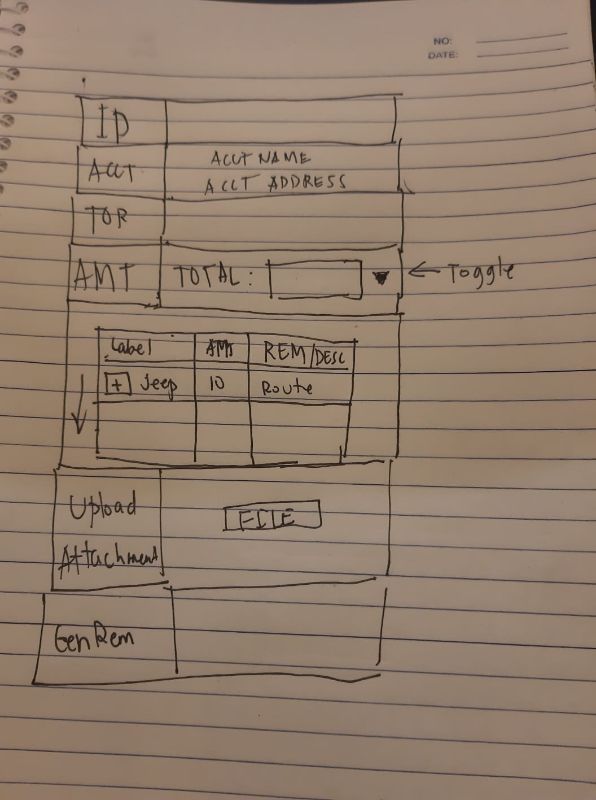 NO:
DATE:
ID
ACCT ACCT NAME
ACCT ADDRESS
TOR
AMT TOTAL: ← Toggle
Label AMT REM/DESC
+ Jeep 10 Route
Upload
Attachment
FILE
GenRem